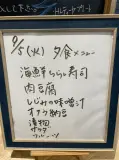 9/5(火) 夕食メニュー
海鮮ちらし寿司
肉豆腐
しじみの味噌汁
オクラ納豆
漬物
サラダ
フルーツ